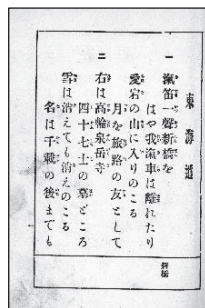 東海道
一 滊笛一聲新橋を
はや我滊車は離れたり
愛宕の山に入りのこる
月を旅路の友として
二 右は高輪泉岳寺
四十七士の墓どころ
雪は消えても消えのこる
名は千載の後までも
新橋